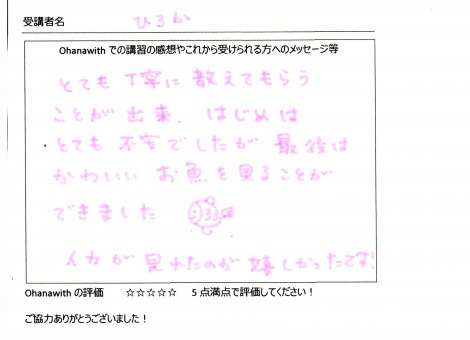 受講者名 ひろか
Ohanawith での講習の感想やこれから受けられる方へのメッセージ等
とても丁寧に教えてもらう
ことが出来、はじめは
とても不安でしたが最後は
かわいいお魚を見ることが
できました
イカが見れたのが嬉しかったです!
Ohanawith の評価 ☆☆☆☆☆ 5 点満点で評価してください!
ご協力ありがとうございました!